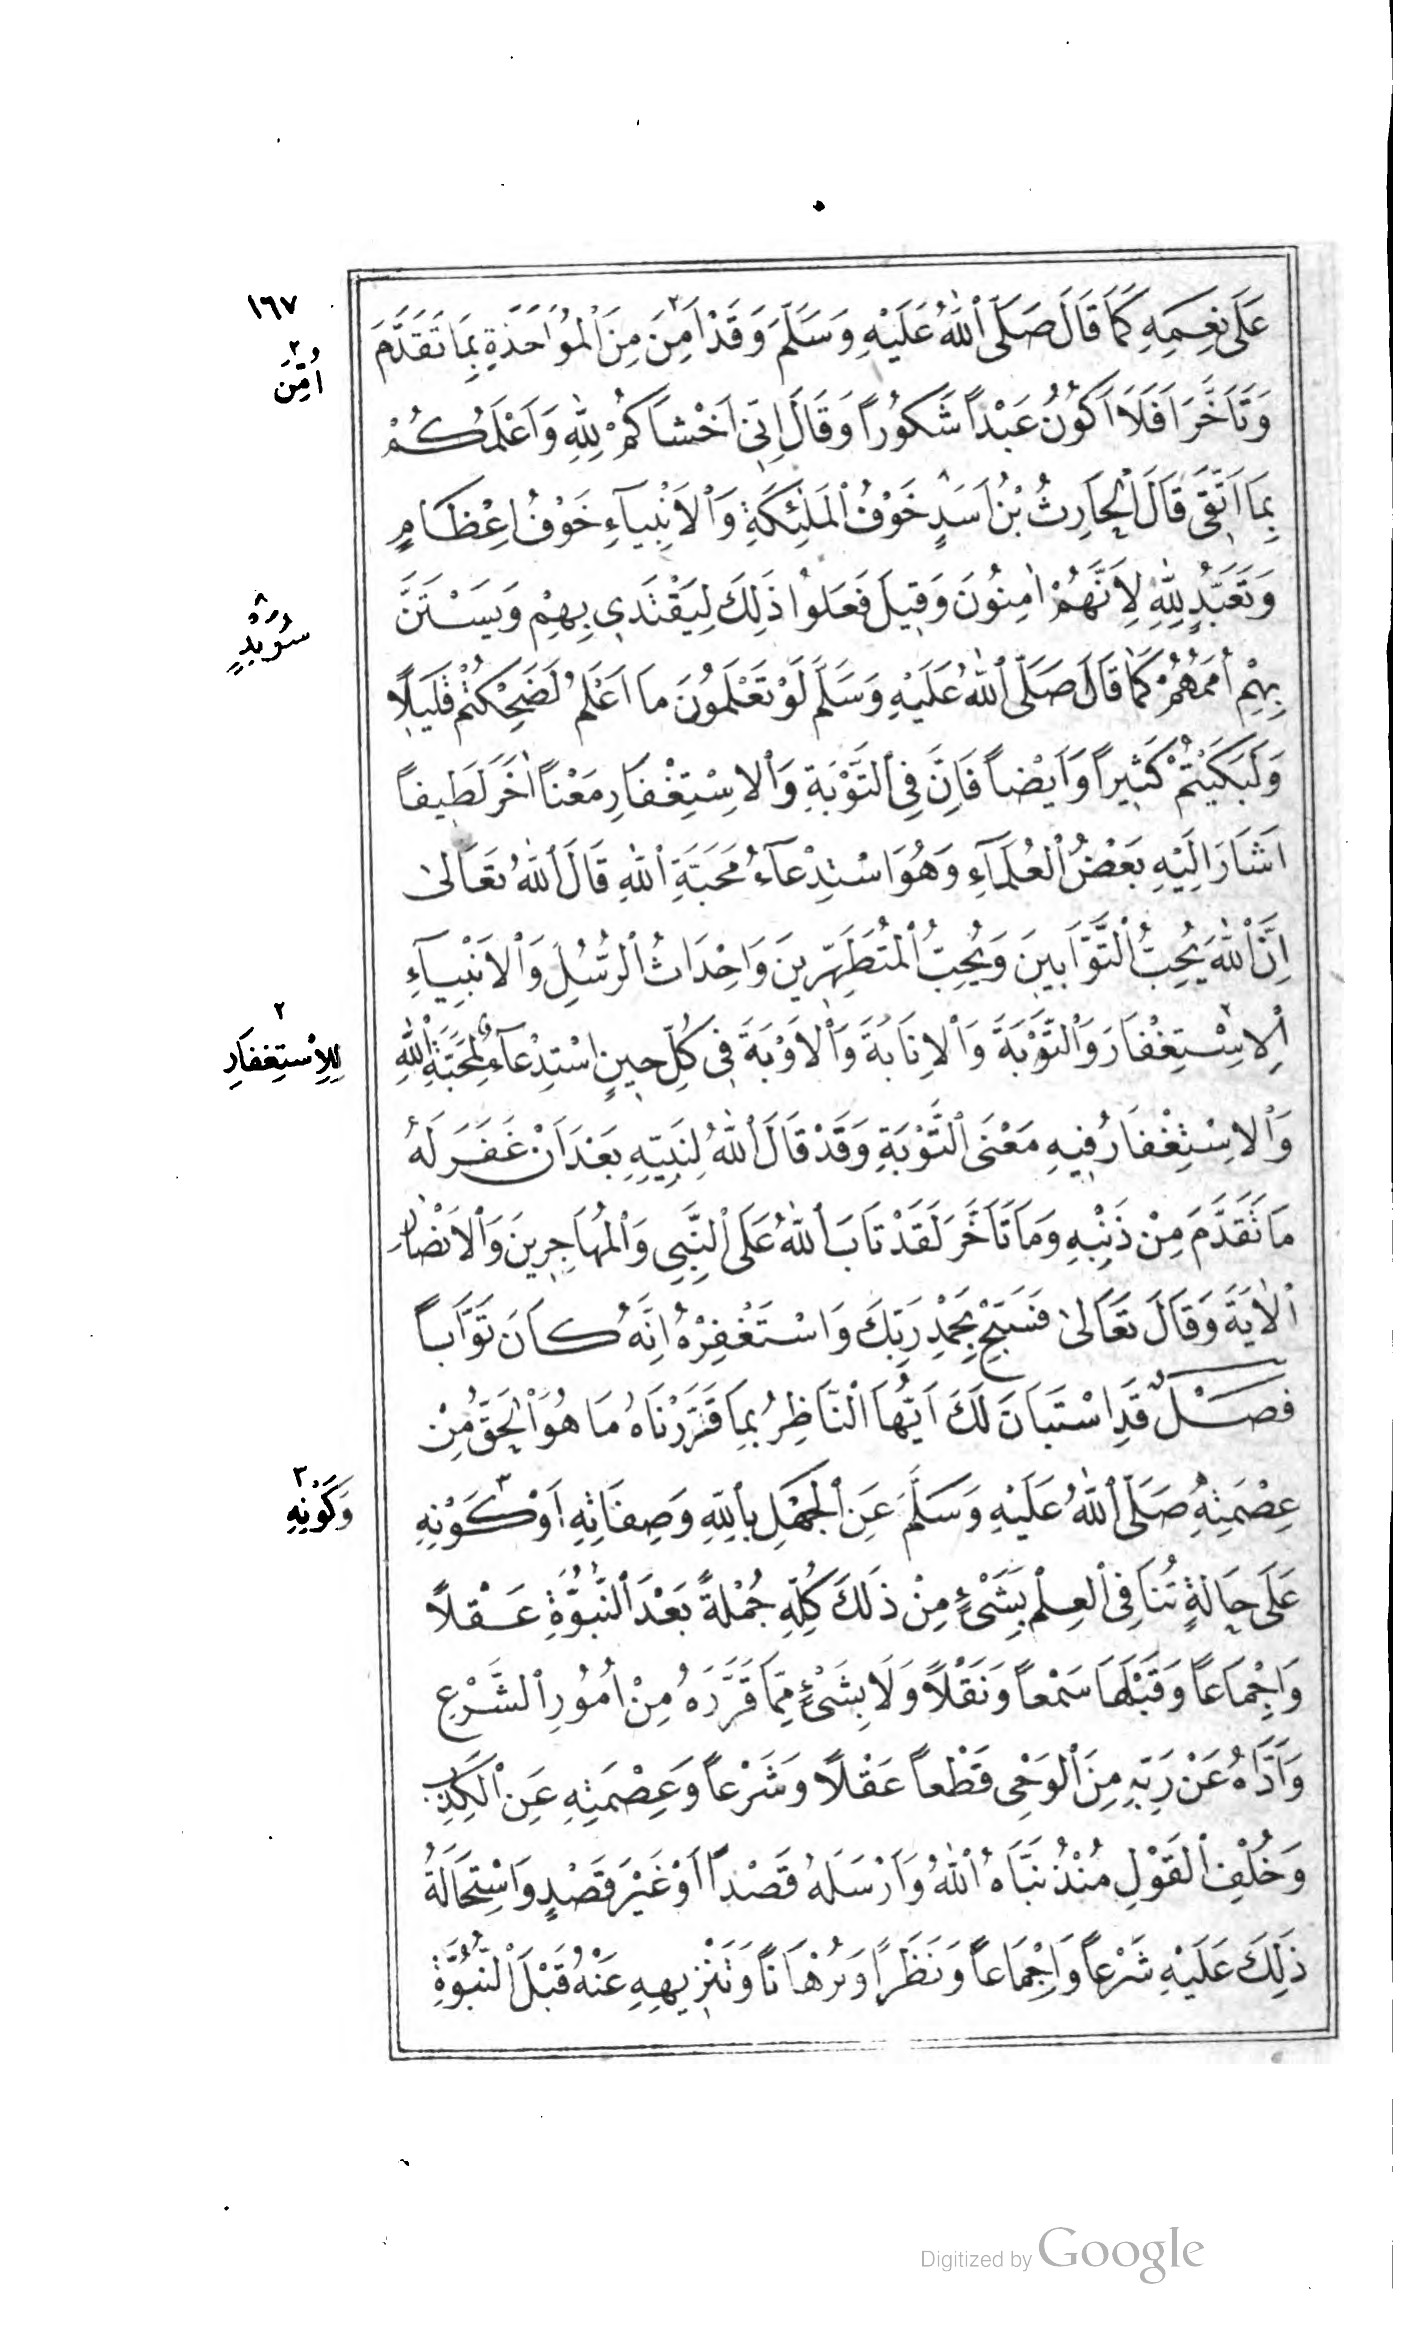 ١٦٧
عَلَى نِعَمِهِ كَمَا قَالَ صَلَّى ٱللهُ عَلَيْهِ وَسَلَّمَ وَقَدْ اَمِنَ ٢ مِنَ ٱلْمُؤَاخَذَةِ بِمَا تَقَدَّمَ
٢ اُمِّنَ
وَتَاَخَّرَ اَفَلَا اَكُونُ عَبْداً شَكُوراً وَقَالَ اِنِّى اَخْشَاكُمْ لِلّٰهِ وَاَعْلَمُكُمْ
بِمَا اَتَّقِى قَالَ ٱلْحَارِثُ بْنُ اَسَدٍ ٨ خَوْفُ ٱلْمَلٰئِكَةِ وَٱلْاَنْبِيَآءِ خَوْفُ اِعْظَامٍ
وَتَعَبُّدٍ لِلّٰهِ لِاَنَّهُمْ اٰمِنُونَ وَقِيلَ فَعَلُوا ذَلِكَ لِيَقْتَدِي بِهِمْ وَيَسْتَنَّ
٨ سُوَيْدٍ
بِهِمْ اُمَمُهُمْ كَمَا قَالَ صَلَّى ٱللهُ عَلَيْهِ وَسَلَّمَ لَوْ تَعْلَمُونَ مَا اَعْلَمُ لَضَحِكْتُمْ قَلِيلًا
وَلَبَكَيْتُمْ كَثِيراً وَاَيْضاً فَاِنَّ فِى ٱلتَّوْبَةِ وَٱلاِسْتِغْفَارِ مَعْناً اٰخَرَ لَطِيفاً
اَشَارَ اِلَيْهِ بَعْضُ ٱلْعُلَمَآءِ وَهُوَ اسْتِدْعَآءُ مَحَبَّةِ ٱللهِ قَالَ ٱللهُ تَعَالىٰ
اِنَّ ٱللهَ يُحِبُّ ٱلتَّوَّابِينَ وَيُحِبُّ ٱلْمُتَطَهِّرِينَ وَاِحْدَاثُ ٱلرُّسُلِ وَٱلاَنْبِيَآءِ
ٱلاِسْتِغْفَارَ ٢ وَٱلتَّوْبَةَ وَٱلاِنَابَةَ وَٱلاَوْبَةَ فِى كُلِّ حِينٍ اسْتِدْعَآءٌ لِمَحَبَّةِ ٱللهِ
٢ لِلِاْسْتِغْفَارِ
وَٱلاِسْتِغْفَارُ فِيهِ مَعْنَى ٱلتَّوْبَةِ وَقَدْ قَالَ ٱللهُ لِنَبِيِّهِ بَعْدَ اَنْ غَفَرَ لَهُ
مَا تَقَدَّمَ مِنْ ذَنْبِهِ وَمَا تَاَخَّرَ لَقَدْ تَابَ ٱللهُ عَلَى ٱلنَّبِيِّ وَٱلْمُهَاجِرِينَ وَٱلاَنْصَارِ
ٱلاٰيَةَ وَقَالَ تَعَالىٰ فَسَبِّحْ بِحَمْدِ رَبِّكَ وَاسْتَغْفِرْهُ اِنَّهُ كَانَ تَوَّاباً
فَصْلٌ قَدِ اسْتَبَانَ لَكَ اَيُّهَا ٱلنَّاظِرُ بِمَا قَرَّرْنَاهُ مَا هُوَ ٱلْحَقُّ مِنْ
عِصْمَتِهِ صَلَّى ٱللهُ عَلَيْهِ وَسَلَّمَ عَنِ ٱلْجَهْلِ بِاللهِ وَصِفَاتِهِ اَوْ كَوْنِهِ ٣
٣ وَكَوْنِهِ
عَلَى حَالَةٍ تُنَافِى ٱلْعِلْمَ بِشَىْءٍ مِنْ ذَلِكَ كُلِّهِ جُمْلَةً بَعْدَ ٱلنُّبُوَّةِ عَقْلاً
وَاِجْمَاعاً وَقَبْلَهَا سَمْعاً وَنَقْلاً وَلَا بِشَىْءٍ مِمَّا قَرَّرَهُ مِنْ اُمُورِ ٱلشَّرْعِ
وَاَدَّاهُ عَنْ رَبِّهِ مِنَ ٱلْوَحْىِ قَطْعاً عَقْلاً وَشَرْعاً وَعِصْمَتِهِ عَنِ ٱلْكَذِبِ
وَخُلْفِ ٱلْقَوْلِ مُنْذُ نَبَّاَهُ ٱللهُ وَاَرْسَلَهُ قَصْداً اَوْ غَيْرَ قَصْدٍ وَاسْتِحَالَةُ
ذَلِكَ عَلَيْهِ شَرْعاً وَاِجْمَاعاً وَنَظَراً وَبُرْهَاناً وَتَنْزِيهِهِ عَنْهُ قَبْلَ ٱلنُّبُوَّةِ
Digitized by Google